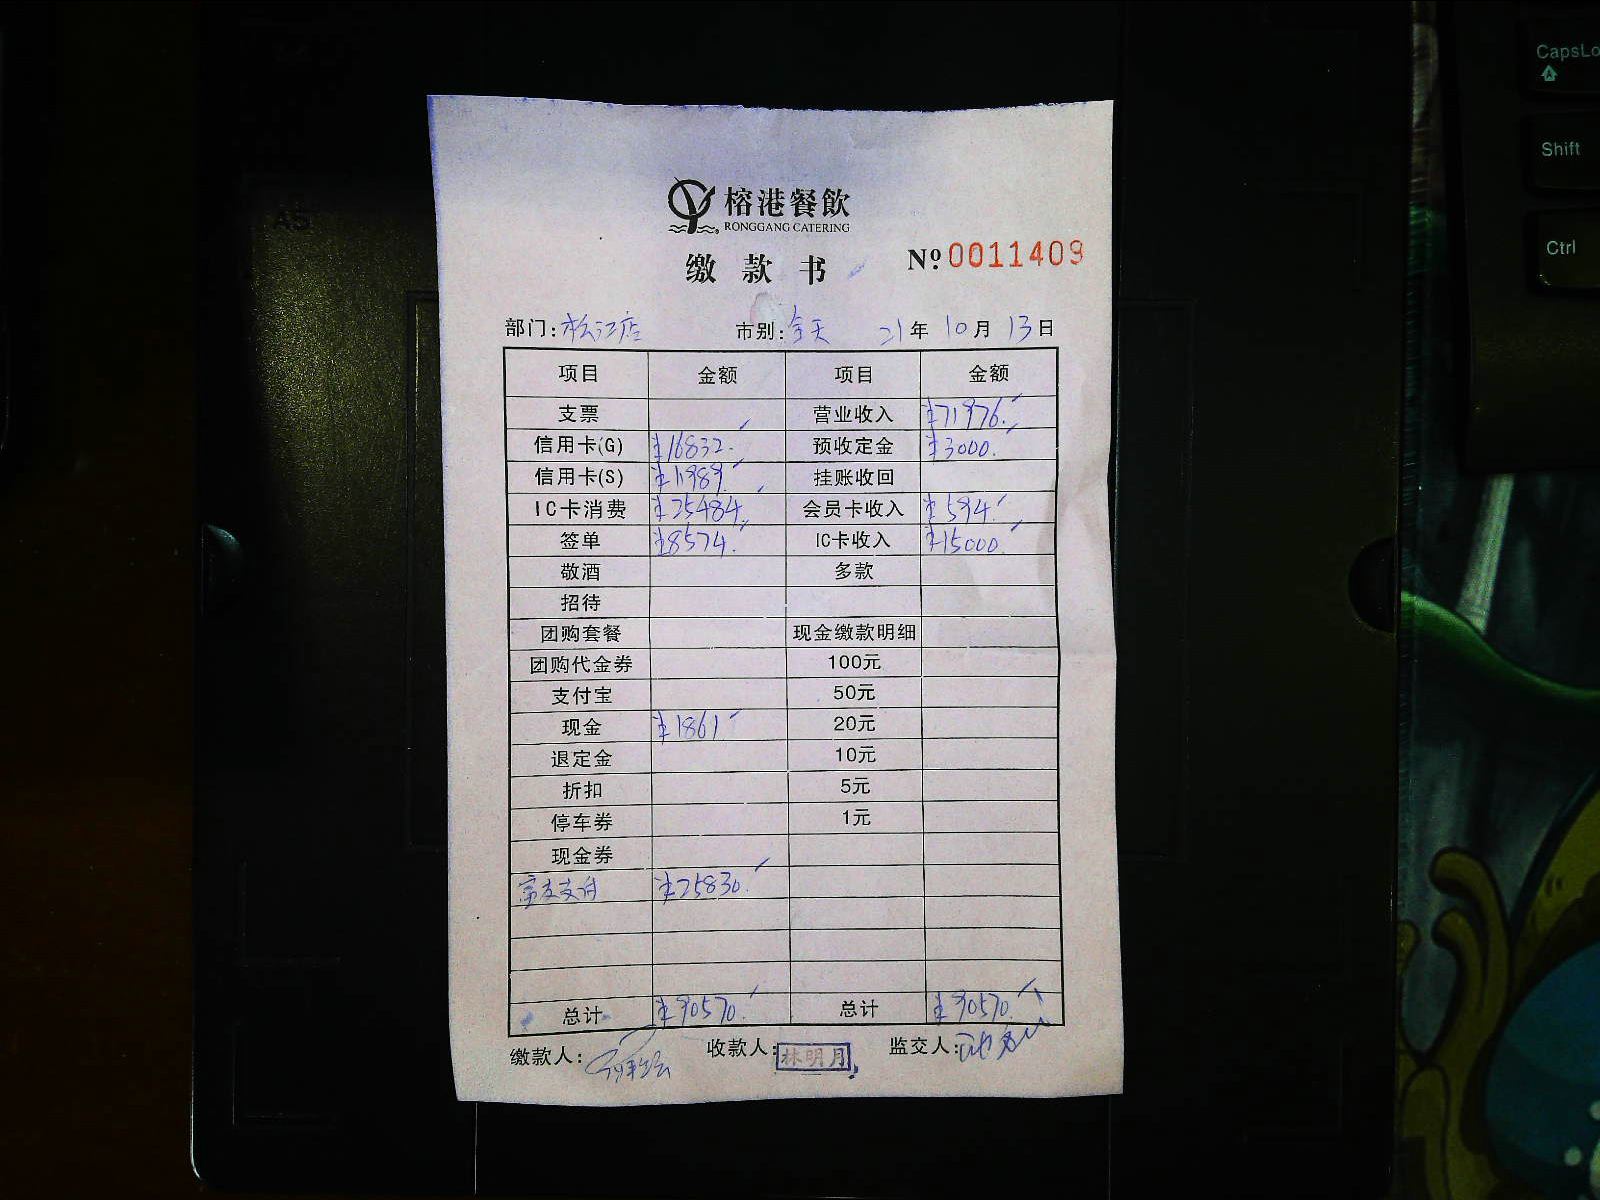 榕港餐飲
RONGGANG CATERING
缴款书 Nº 0011409
部门: 松江店 市别: 全天 21年 10月 13日
项目 金额 项目 金额
支票 营业收入 ¥71976.
信用卡(G) ¥16832. 预收定金 ¥3000.
信用卡(S) ¥11989. 挂账收回
IC卡消费 ¥25484. 会员卡收入 ¥594.
签单 ¥8574. IC卡收入 ¥15000.
敬酒 多款
招待
团购套餐 现金缴款明细
团购代金券 100元
支付宝 50元
现金 ¥1861 20元
退定金 10元
折扣 5元
停车券 1元
现金券
富友支付 ¥25830.
总计 ¥90570. 总计 ¥90570.
缴款人: 收款人: 林明月 监交人:
CapsLo
Shift
Ctrl